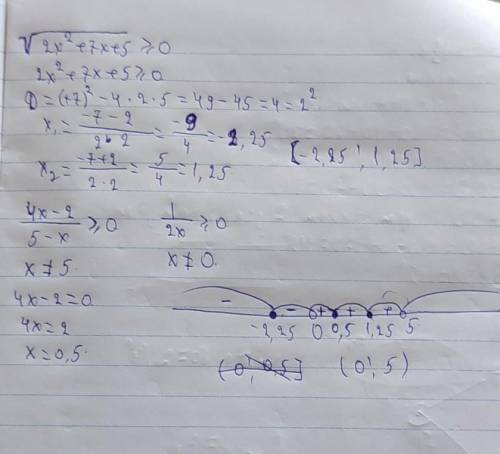 √(2x²+7x+5) ≥ 0
2x²+7x+5 ≥ 0
D = (+7)² - 4 · 2 · 5 = 49 - 45 = 4 = 2²
x₁ = (-7 - 2)/(2 · 2) = -9/4 = -2,25
x₂ = (-7+2)/(2 · 2) = 5/4 = 1,25
[-2,25 ; 1,25]
(4x-2)/(5-x) ≥ 0 1/(2x) ≥ 0
x ≠ 5 x ≠ 0
4x-2=0
4x=2
x=0,5
- - + + +
-2,25 0 0,5 1,25 5
(0 ; 0,5] (0 ; 5)